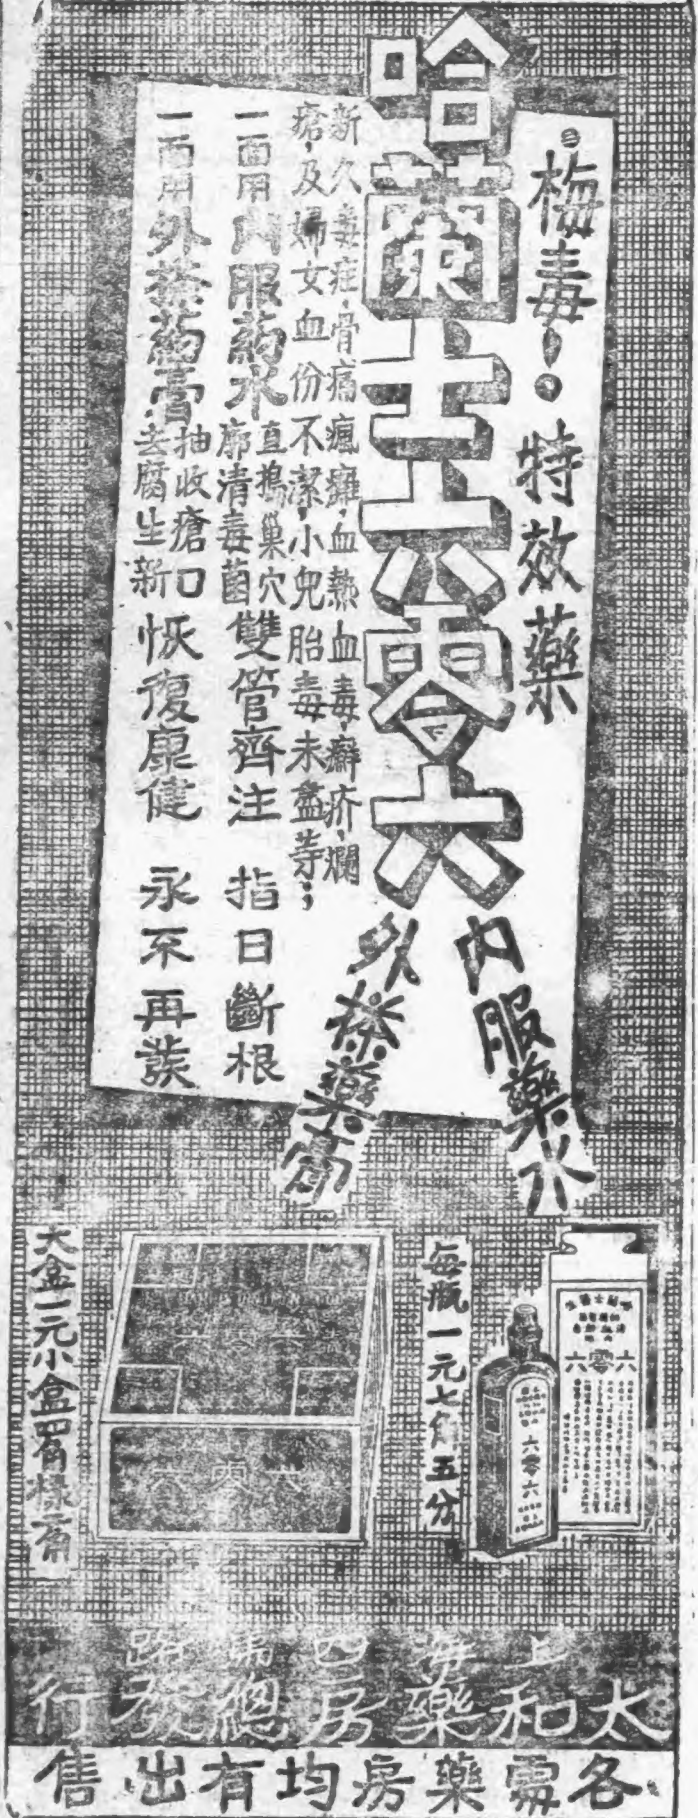 梅毒！特效藥
哈蘭士六零六
內服藥水
外搽藥膏
新久毒症，骨痛瘋癱，血熱血毒，癬疥，爛
瘡，及婦女血份不潔，小兒胎毒未盡等；
一面用內服药水直搗巢穴
廓清毒菌雙管齊注　指日斷根
一面用外搽药膏抽收瘡口
去腐生新恢復康健　永不再發
每瓶一元七角五分
六零六
六零六
六零六
六零六
大盒一元小盒
上海四馬路
太和藥房總發行
各處藥房均有出售